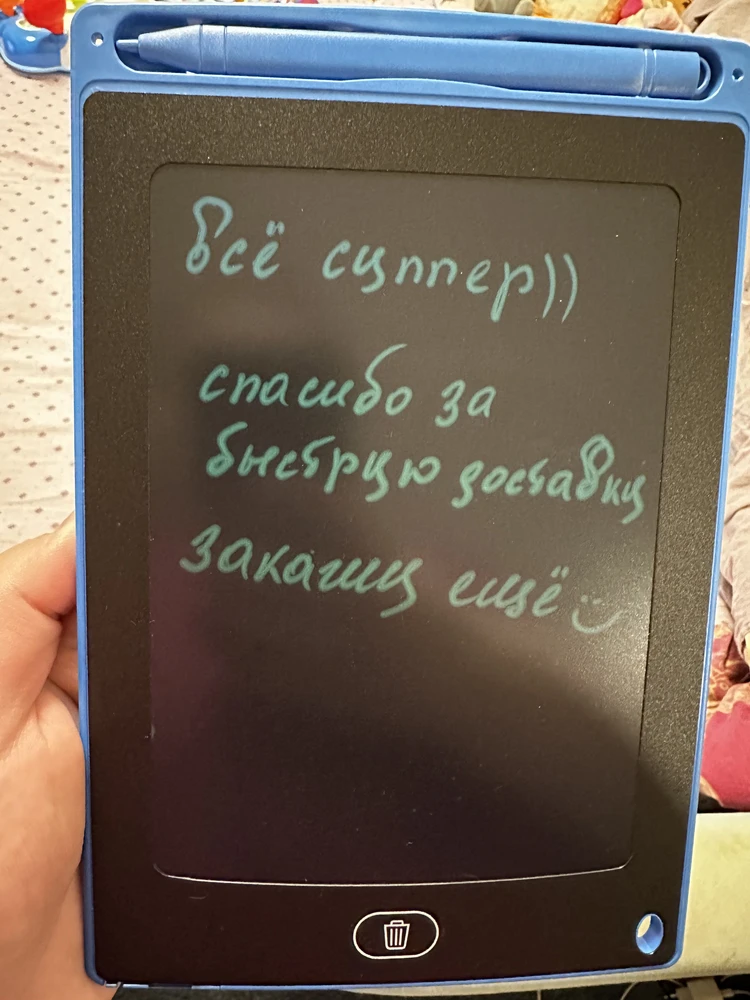 Всё суппер))
спасибо за
быструю доставку
закажу ещё :)